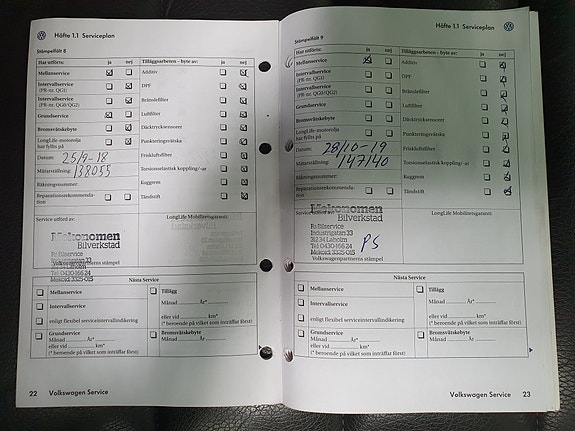 Häfte 1.1 Serviceplan
Stämpelfält 8
Har utförts: ja nej Tilläggsarbeten – byte av: ja nej
Mellanservice Additiv
Intervallservice (PR-nr. QG1) DPF
Intervallservice (PR-nr. QG0/QG2) Bränslefilter
Grundservice Luftfilter
Bromsvätskebyte Däcktrycksensorer
LongLife-motorolja har fyllts på Punkteringsvätska
Datum: 25/9-18 Friskluftsfilter
Mätarställning: 138055 Torsionselastisk koppling/-ar
Räkningsnummer: Kuggrem
Reparationsrekommendation Tändstift
Service utförd av: LongLife Mobilitetsgaranti:
Mekonomen
Bilverkstad
Bilservice
Industrigatan 33
Tel 0430 166 24
Volkswagenpartnerns stämpel
Nästa Service
Mellanservice Tillägg
Månad År*
Intervallservice
eller vid km*
enligt flexibel serviceintervallindikering (* beroende på vilket som inträffar först)
Grundservice Bromsvätskebyte
Månad År* Månad År*
eller vid km*
(* beroende på vilket som inträffar först)
22 Volkswagen Service
Häfte 1.1 Serviceplan
Stämpelfält 9
Har utförts: ja nej Tilläggsarbeten – byte av: ja nej
Mellanservice Additiv
Intervallservice (PR-nr. QG1) DPF
Intervallservice (PR-nr. QG0/QG2) Bränslefilter
Grundservice Luftfilter
Bromsvätskebyte Däcktrycksensorer
LongLife-motorolja har fyllts på Punkteringsvätska
Datum: 28/10-19 Friskluftsfilter
Mätarställning: 147140 Torsionselastisk koppling/-ar
Räkningsnummer: Kuggrem
Reparationsrekommendation Tändstift
Service utförd av: LongLife Mobilitetsgaranti:
Mekonomen
Bilverkstad
Bilservice
Industrigatan 33
312 34 Laholm PS
Tel 0430 166 24
Volkswagenpartnerns stämpel
Nästa Service
Mellanservice Tillägg
Månad År*
Intervallservice
eller vid km*
enligt flexibel serviceintervallindikering (* beroende på vilket som inträffar först)
Grundservice Bromsvätskebyte
Månad År* Månad År*
eller vid km*
(* beroende på vilket som inträffar först)
Volkswagen Service 23